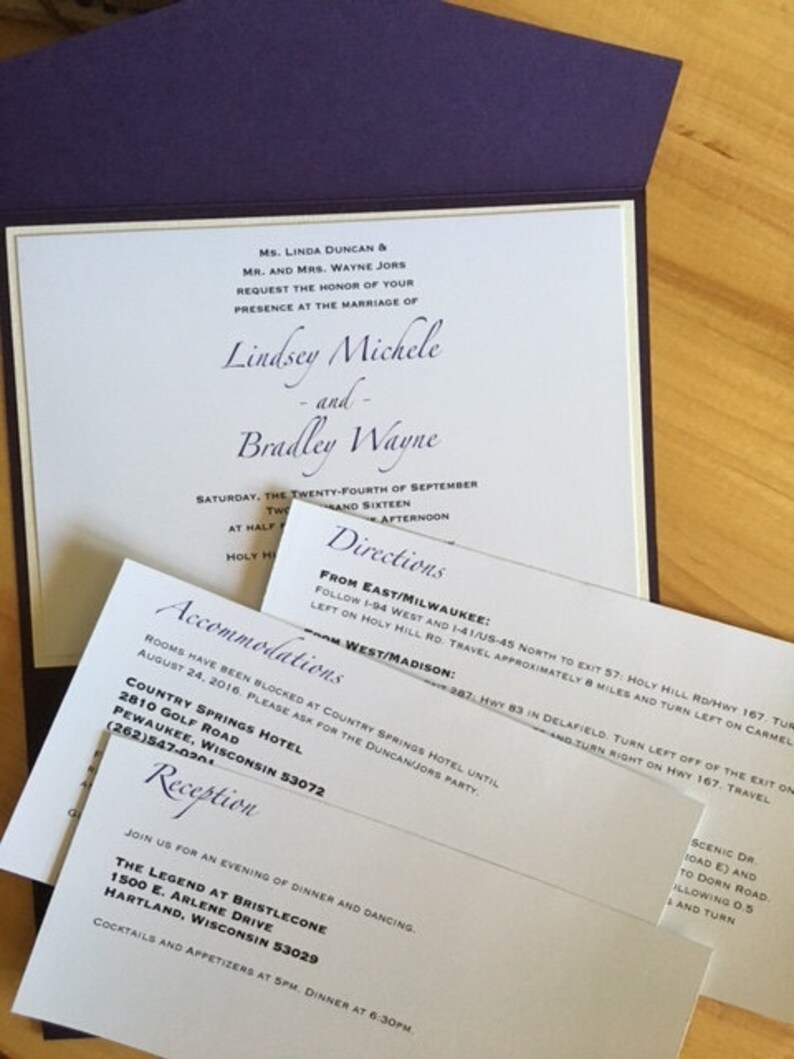 Ms. Linda Duncan &
Mr. and Mrs. Wayne Jors
request the honor of your
presence at the marriage of
Lindsey Michele
- and -
Bradley Wayne
Saturday, the Twenty-Fourth of September
Two Thousand Sixteen
at half Afternoon
Holy
Directions
From East/Milwaukee:
Follow I-94 West and I-41/US-45 North to exit 57: Holy Hill Rd/Hwy 167.
left on Holy Hill Rd. Travel approximately 8 miles and turn left on Carmel
From West/Madison:
exit 287: Hwy 83 in Delafield. Turn left off of the exit on
and turn right on Hwy 167. Travel
Scenic Dr.
Road E) and
to Dorn Road.
0.5
and turn
Accommodations
Rooms have been blocked at Country Springs Hotel until
August 24, 2016. Please ask for the Duncan/Jors party.
Country Springs Hotel
2810 Golf Road
Pewaukee, Wisconsin 53072
(262)547-0201
Reception
Join us for an evening of dinner and dancing.
The Legend at Bristlecone
1500 E. Arlene Drive
Hartland, Wisconsin 53029
Cocktails and Appetizers at 5pm. Dinner at 6:30pm.